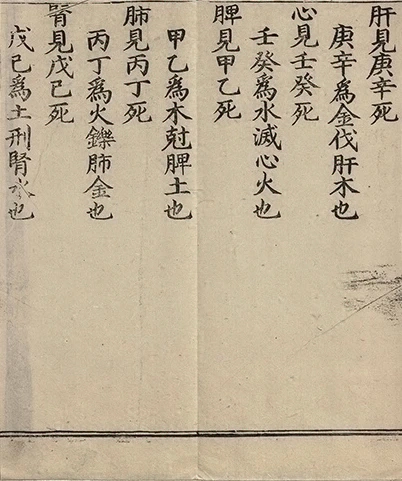 肝見庚辛死
庚辛為金伐肝木也
心見壬癸死
壬癸為水滅心火也
脾見甲乙死
甲乙為木尅脾土也
肺見丙丁死
丙丁為火鑠肺金也
腎見戊己死
戊己為土刑腎水也